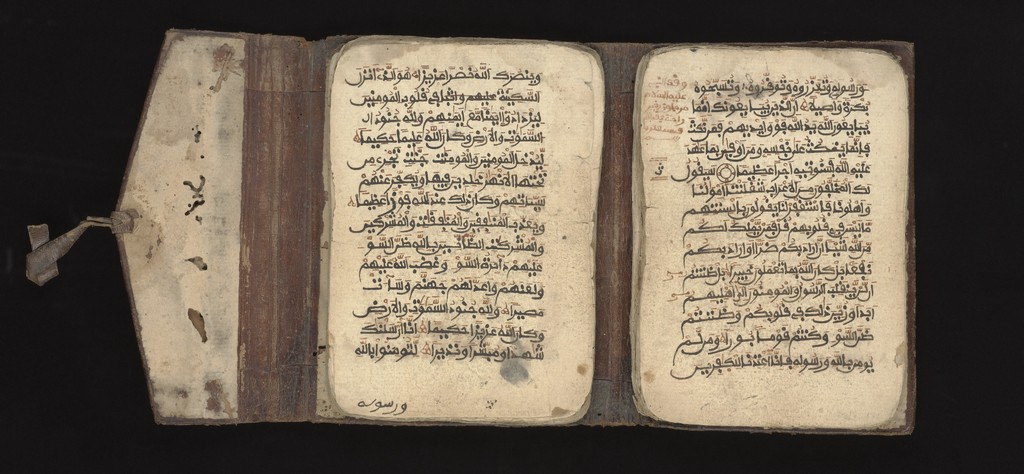 وينصرك الله نصرا عزيزا هو الذي انزل
السكينة عليهم في قلوب المومنين
ليزدادوا ايمنا مع ايمنهم ولله جنود ا
السموت والارض وكان الله عليما حكيما
ليدخل المومنين والمومنت جنت تجري من
تحتها الانهر خلدين فيها ويكفر عنهم
سيئاتهم وكان ذلك عند الله فوزا عظيما
ويعذب المنافقين والمنافقات والمشركين
والمشركت الظانين بالله ظن السو
عليهم دائرة السو وغضب الله عليهم
ولعنهم واعد لهم جهنم وساءت
مصيرا ولله جنود السموت والارض
وكان الله عزيزا حكيما انا ارسلنك
شهدا ومبشرا ونذيرا لتومنوا بالله
ورسوله
ورسوله وتعزروه وتوقروه وتسبحوه
بكرة واصيلا ان الذين يبايعونك انما
يبايعون الله يد الله فوق ايديهم فمن نكث
فانما ينكث على نفسه ومن اوفى بما عهد
عليه الله فسنوتيه اجرا عظيما سيقول
لك المخلفون من الاعراب شغلتنا اموالنا
واهلونا فاستغفر لنا يقولون بالسنتهم
ما ليس في قلوبهم قل فمن يملك لكم
من الله شيئا ان اراد بكم ضرا او اراد بكم
نفعا بل كان الله بما تعملون خبيرا بل ظننتم
ان لن ينقلب الرسول والمومنون الى اهليهم
ابدا وزين ذلك في قلوبكم وظننتم
ظن السو وكنتم قوما بورا ومن لم
يومن بالله ورسوله فانا اعتدنا للكفرين